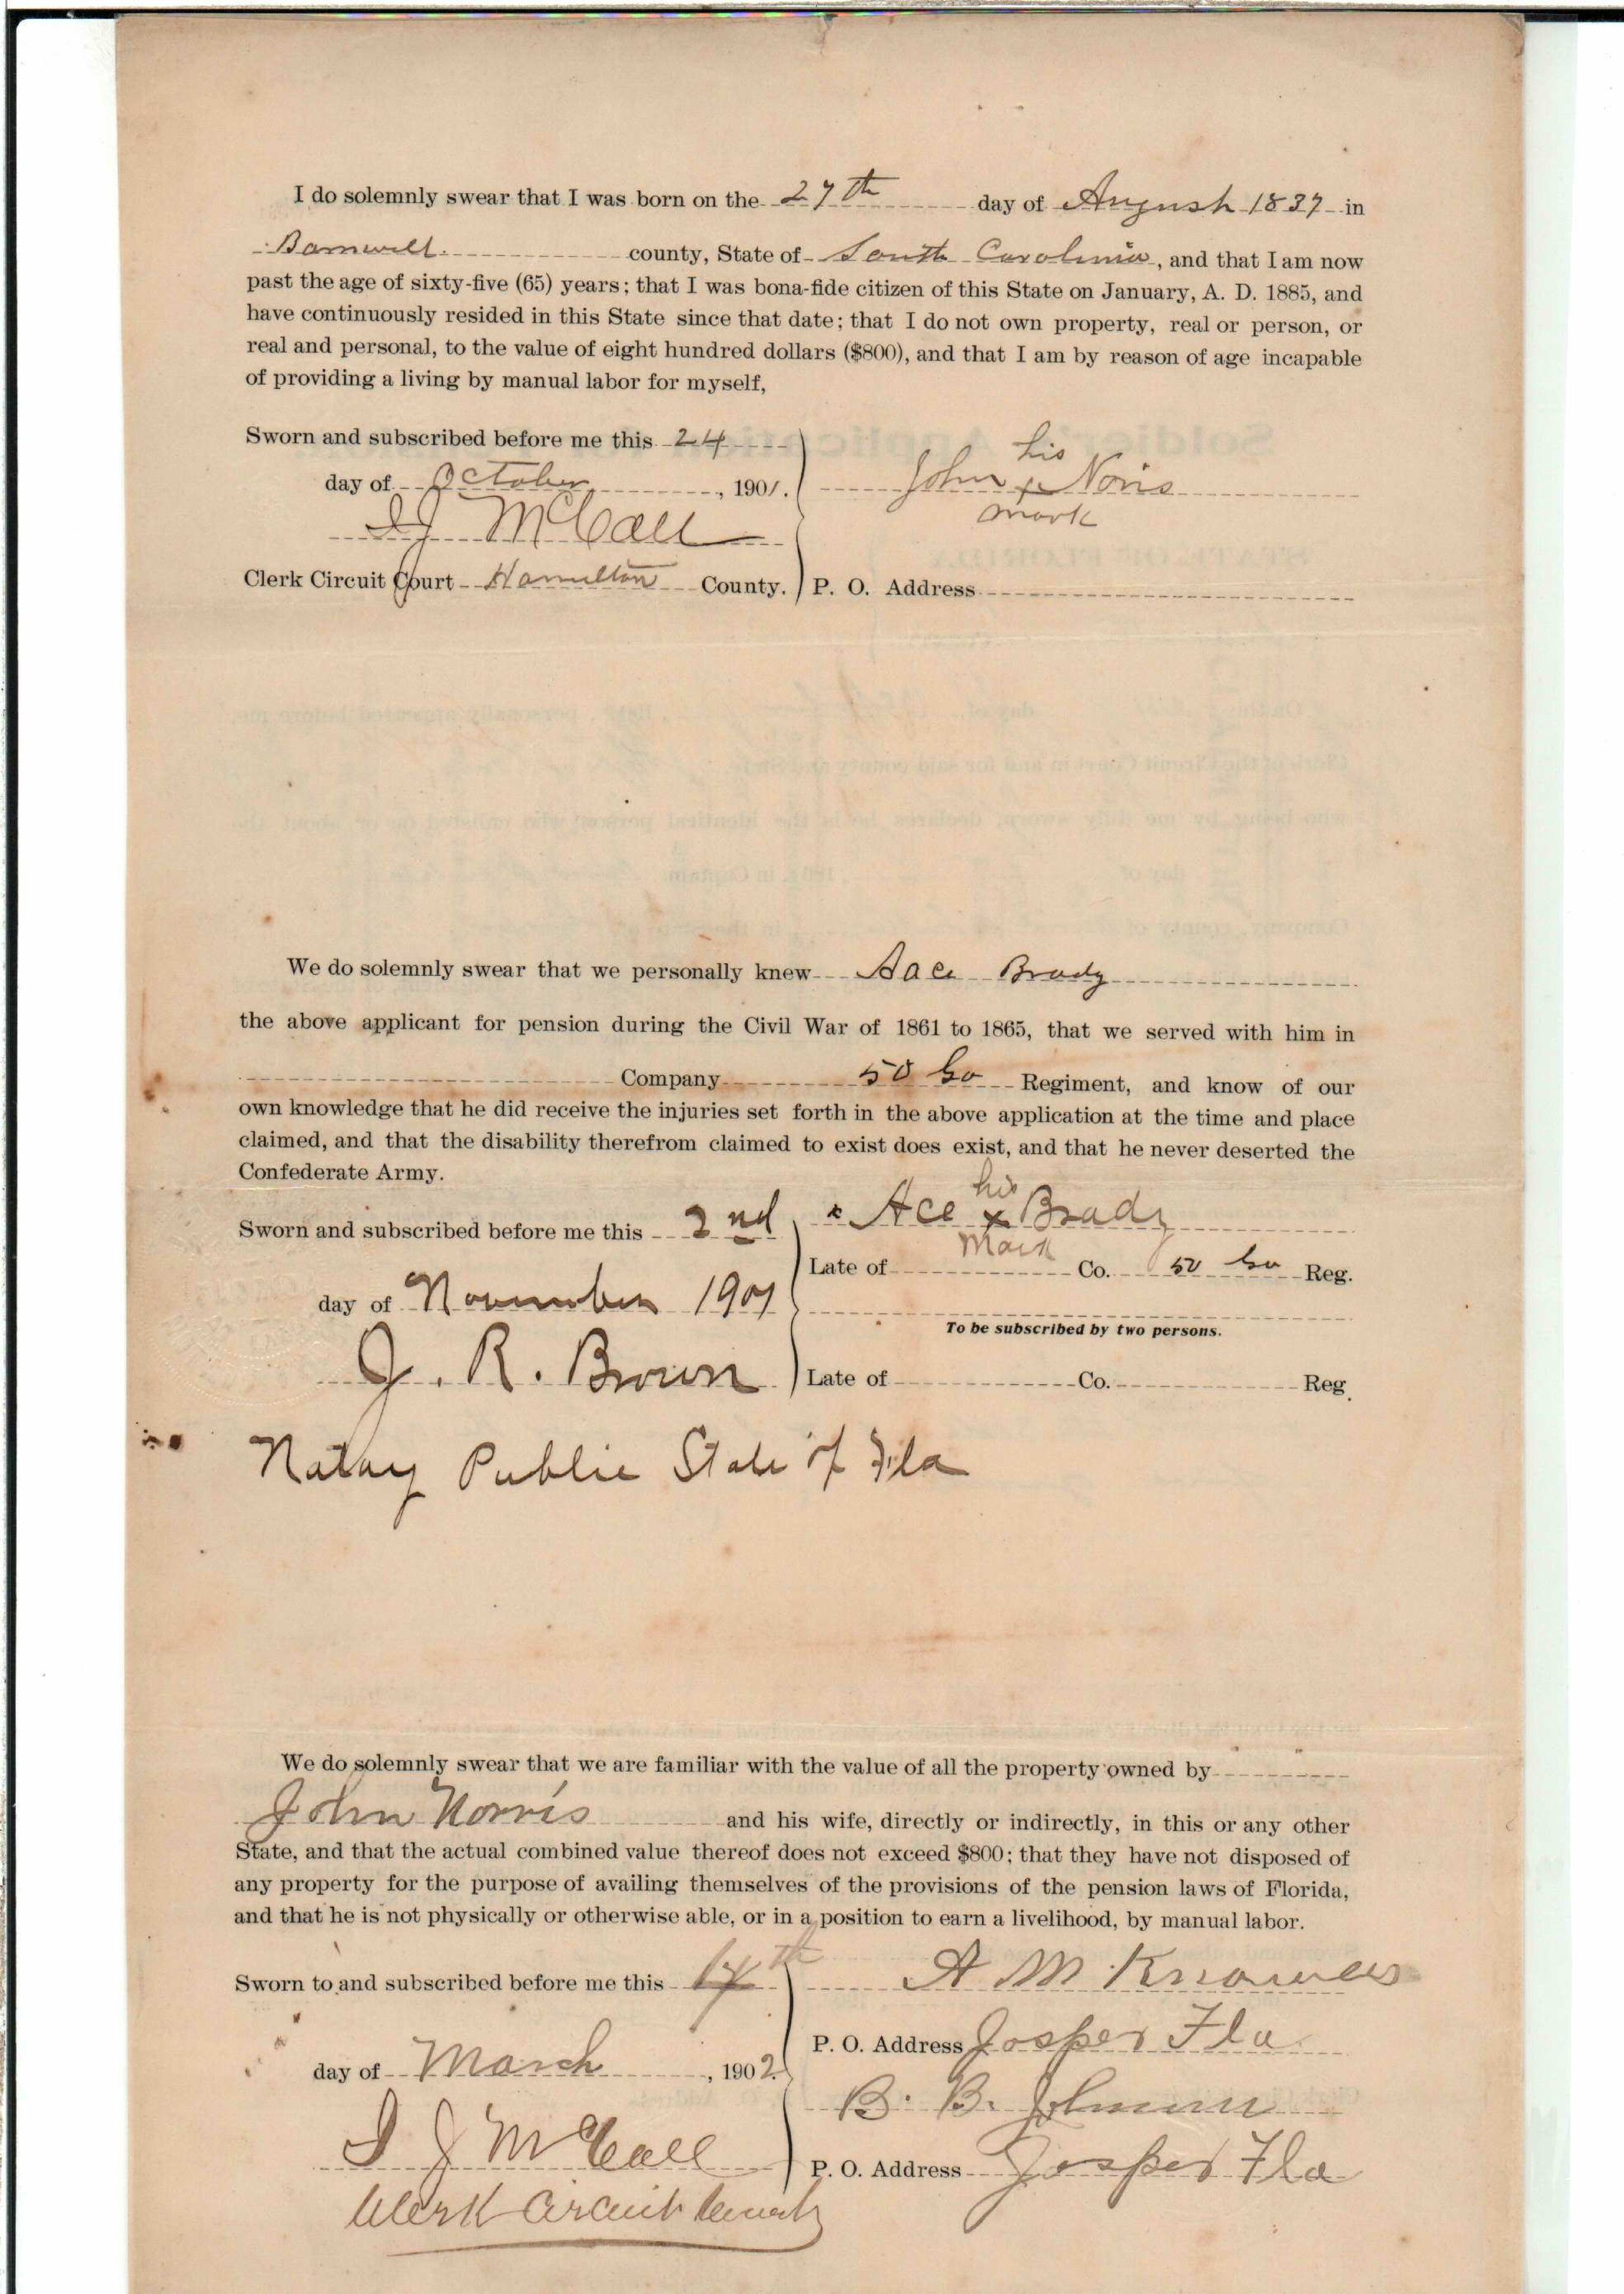 I do solemnly swear that I was born on the 27th day of August 1837 in
Barnwell county, State of South Carolinia, and that I am now
past the age of sixty-five (65) years; that I was bona-fide citizen of this State on January, A. D. 1885, and
have continuously resided in this State since that date; that I do not own property, real or person, or
real and personal, to the value of eight hundred dollars ($800), and that I am by reason of age incapable
of providing a living by manual labor for myself,
Sworn and subscribed before me this 24
his
day of October, 1901. John x Noris
mark
McCall
Clerk Circuit Court Hamilton County. P. O. Address
We do solemnly swear that we personally knew Aace Brady
the above applicant for pension during the Civil War of 1861 to 1865, that we served with him in
Company 50 Ga Regiment, and know of our
own knowledge that he did receive the injuries set forth in the above application at the time and place
claimed, and that the disability therefrom claimed to exist does exist, and that he never deserted the
Confederate Army.
his
Sworn and subscribed before me this 2nd x Ace x Brady
mark
Late of Co. 50 Ga Reg.
day of November 1901
To be subscribed by two persons.
J. R. Brown Late of Co. Reg.
Notary Public State of Fla
We do solemnly swear that we are familiar with the value of all the property owned by
John Norris and his wife, directly or indirectly, in this or any other
State, and that the actual combined value thereof does not exceed $800; that they have not disposed of
any property for the purpose of availing themselves of the provisions of the pension laws of Florida,
and that he is not physically or otherwise able, or in a position to earn a livelihood, by manual labor.
Sworn to and subscribed before me this A M Knowles
P. O. Address Jasper Fla
day of March, 1902
B. B. Johnson
J McCall P. O. Address Jasper Fla
Clerk Circuit Court